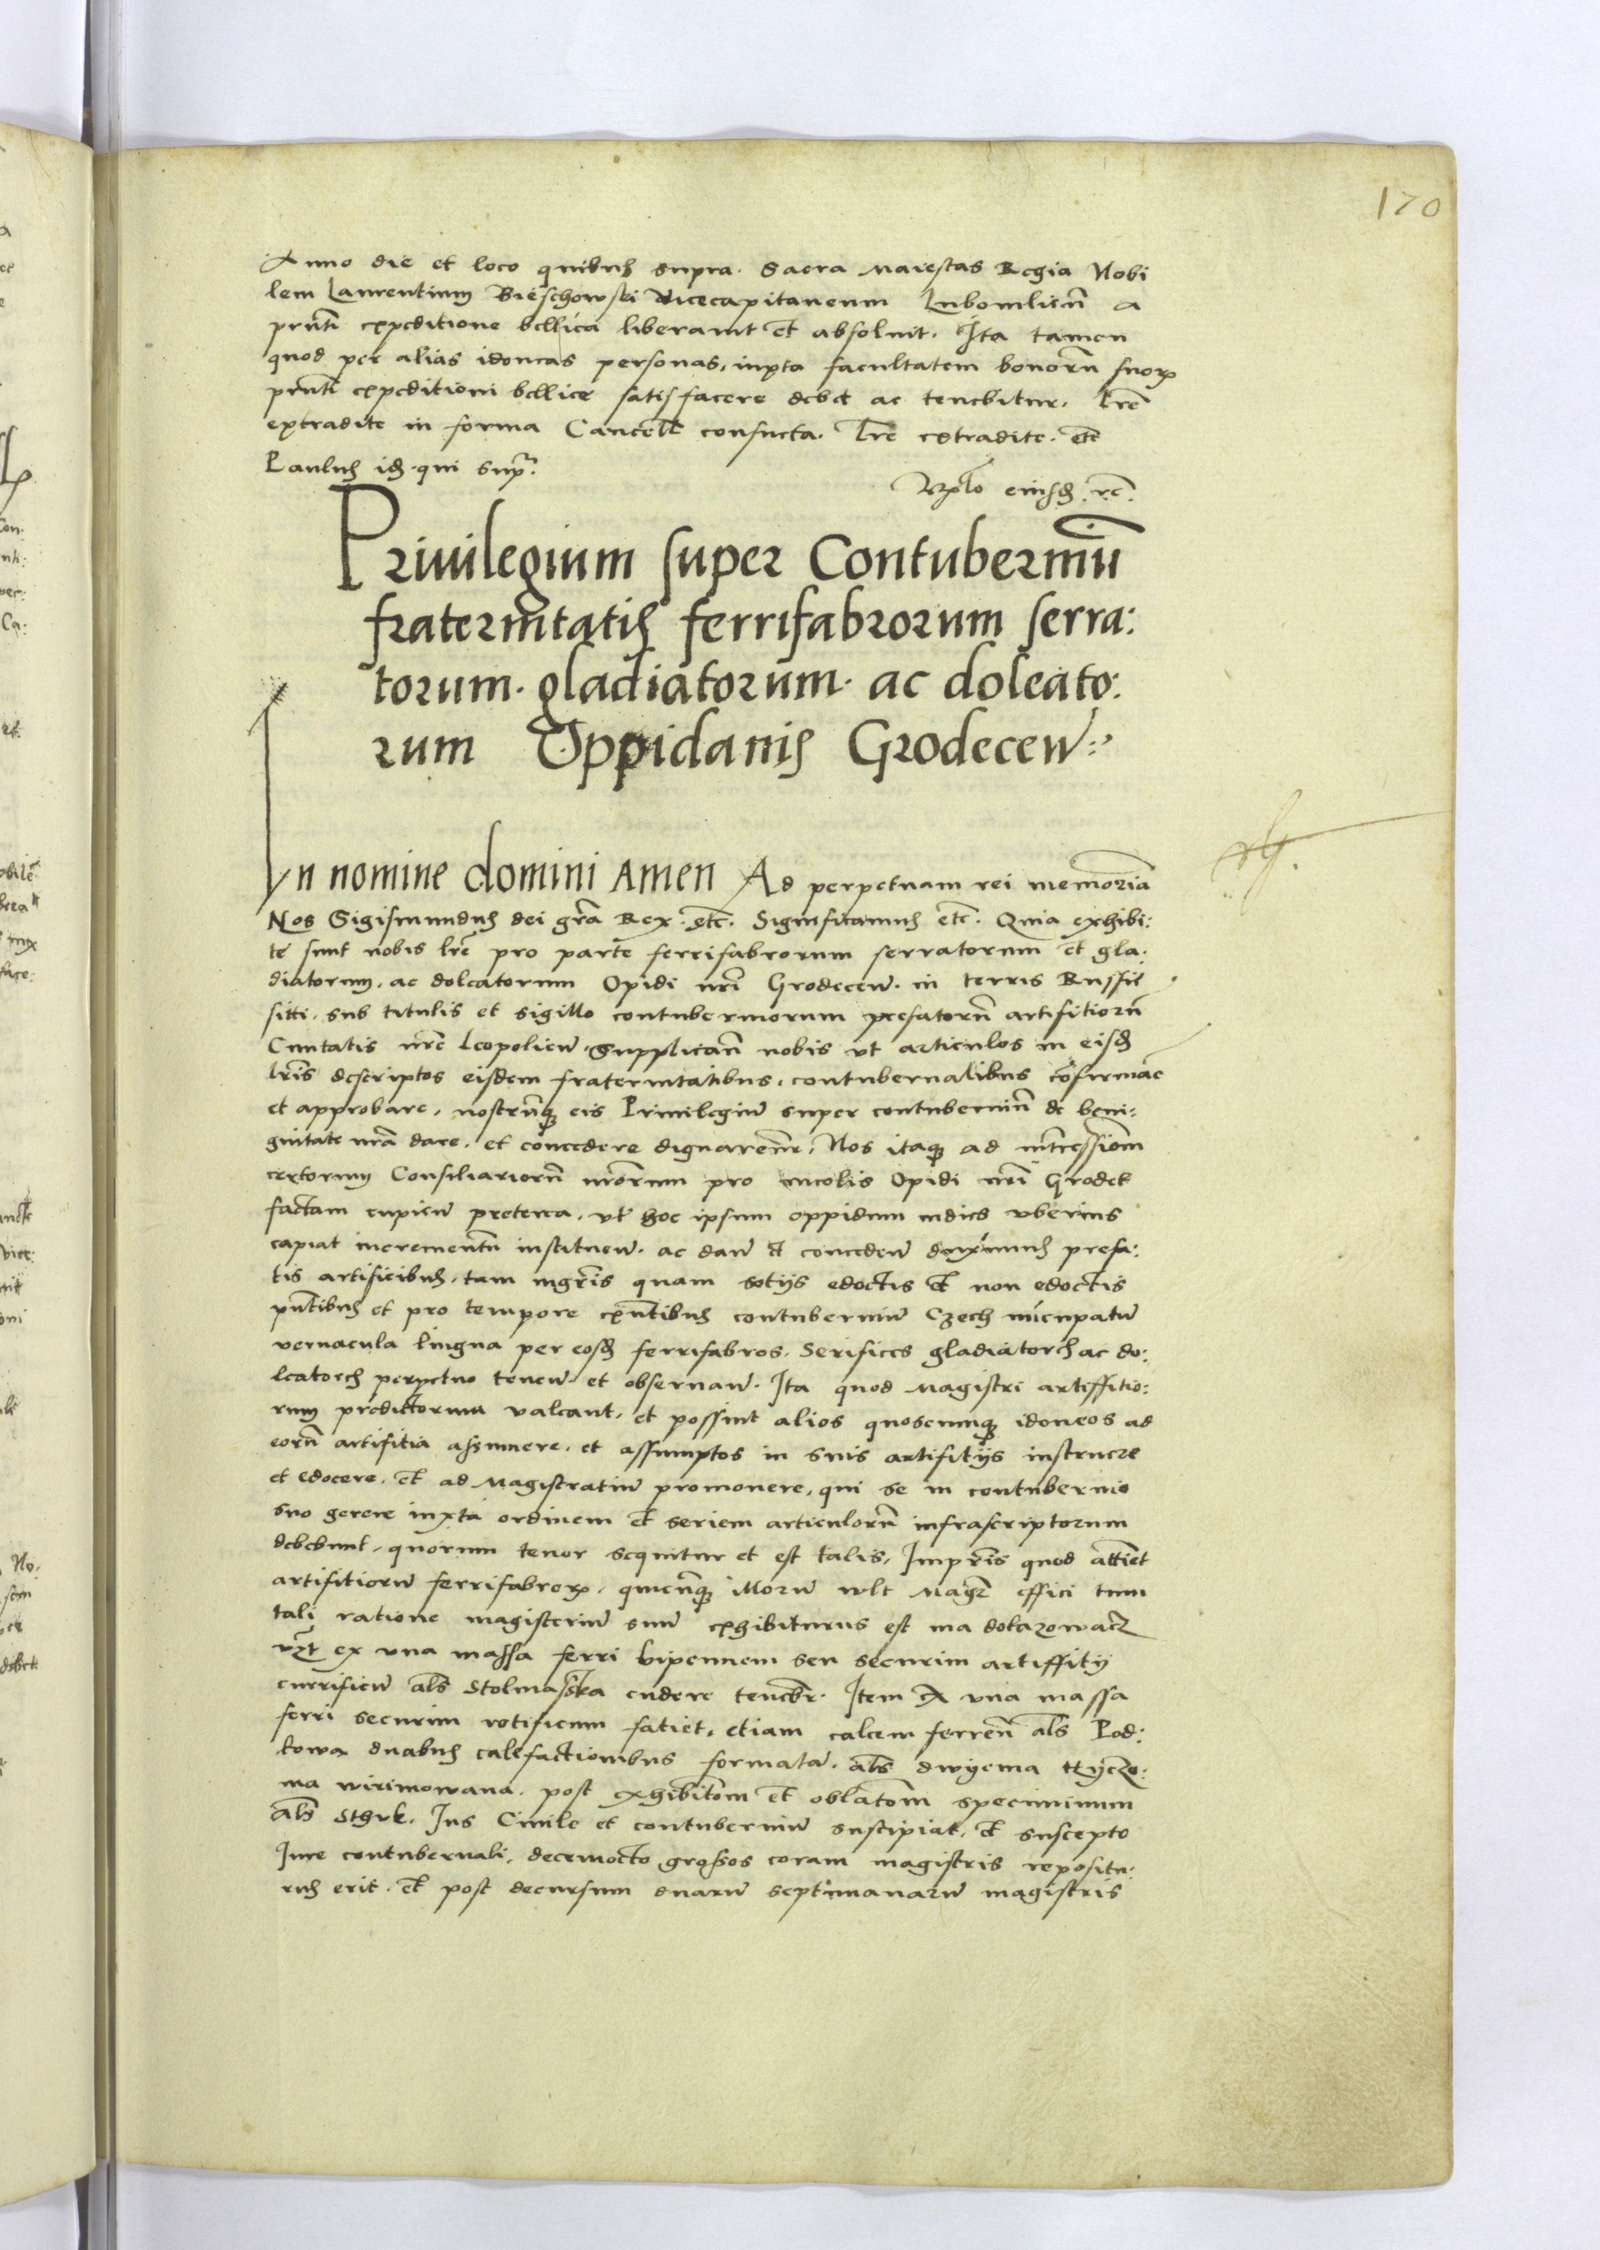 170
Anno die et loco quibus supra. Sacra Maiestas Regia Nobi
lem Laurentium Bieschowski Vicecapitaneum Lubomlien̄ a
prn̄ti expeditione bellica liberavit et absoluit. Ita tamen
quod per alias idoneas personas, iuxta facultatem bonorū suorꝝ
prn̄ti expeditioni bellice satisfacere debet ac tenebitur. Lr̄e
extradite in forma Cancell̄ consueta. Lr̄e extradite. etc̄
Paulus id̄. qui supr̄.
eiusd̄. rc̄.
Priuilegium super Contuberniū
fraternitatis ferrifabrorum serra:
torum. gladiatorum. ac doleato:
rum Oppidanis Grodecen̄:
In nomine domini Amen Ad perpetuam rei memoriā
Nos Sigismundus dei gr̄a Rex. etc̄. Significamus etc̄. Quia exhibi:
te sunt nobis lr̄e pro parte ferrifabrorum serratorum et gla:
diatorum. ac doleatorum Opidi nr̄i Grodecen̄. in terris Russie
siti. sub titulis et sigillo contuberniorum prefatorū artifitiorū
Ciuitatis nr̄e Leopolien̄. Supplican̄ nobis vt articulos in eisd̄
lr̄is descriptos eisdem fraternitatibus, contubernalibus cōfirmare
et approbare, nostrumq̄ eis Priuilegiū super contuberniū de beni:
gnitate nr̄a dare. et concedere dignaremr̄. Nos itaq̄ ad intercessiom̄
certorum Consiliariorū nr̄orum pro incolis Opidi nr̄i Grodek
factam cupien̄ preterea, vt hoc ipsum oppidum indies vberius
capiat incrementū instituen̄. ac dan̄ et conceden̄ duximus prefa:
tis artificibus, tam mgr̄is quam sotijs edoctis et non edoctis
pn̄tibus et pro tempore exn̄tibus contuberniū Czech nūcupatū
vernacula lingua per eosd̄ ferrifabros. Serifices gladiatores ac do:
leatores perpetuo tenen̄. et obseruan̄. Ita quod Magistri artiffitio:
rum predictorum valeant, et possint alios quoscumq̄ idoneos ad
eorū artifitia assumere, et assumptos in suis artifitijs instruere
et edocere, et ad Magistratum promouere, qui se in contubernio
suo gerere iuxta ordinem et seriem articulorū infrascriptorum
debebunt, quorum tenor sequitur et est talis. Impr̄is quod attīet
artifitiorū ferrifabrorꝝ. quicūq̄ illorū vult Magr̄ effici tum
tali ratione magisteriū suū exhibiturus est ma dokazowacz
vz̄t ex vna massa ferri bipennem seu securim artiffitij
currificū al̄s Stolmaska cudere tenebr̄. Item ex vna massa
ferri securim rotificum fatiet, etiam calcem ferreū al̄s Pod:
kowa duabus calefactionibus formata. al̄s dwyema
ma wirimowana. post exhibitom̄ et oblatom̄ speciminum
al̄s Sthuk. Ius Ciuile et contuberniū suscipiat, et suscepto
Iure contubernali, decemocto grossos coram magistris repositu:
rus erit. et post decursum duarū septimanarū magistris